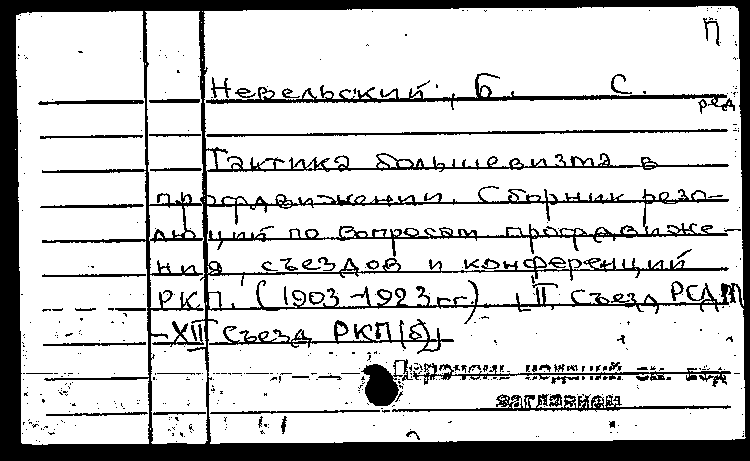 П
Невельский, Б. С.
ред
Тактика большевизма в
профдвижении. Сборник резо-
люций по вопросам профдвиже-
ния, съездов и конференций
РКП. (1903-1923 гг.). [II съезд РСДРП
-XII съезд РКП(б)]
Перечень изданий см. под
заглавием